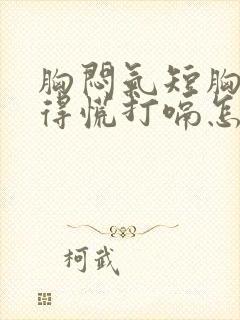 胸悶氣短胸
得慌打嗝怎
柯武